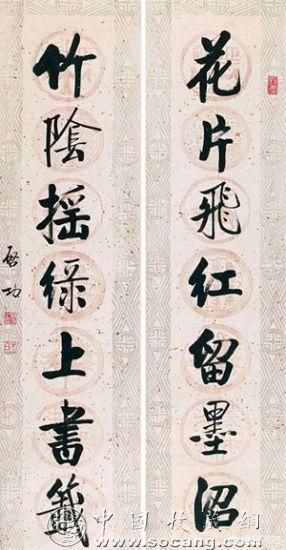 花片飛紅留墨沼
竹陰摇綠上書籤
啟功
中國收藏網
www.socang.com